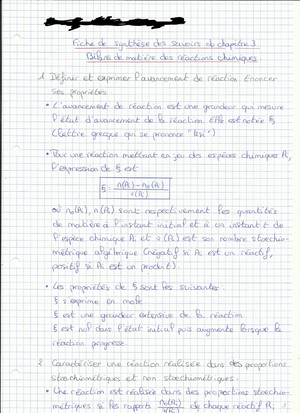 Fiche de synthèse des savoirs du chapitre 3
Bilans de matière des réactions chimiques
1. Définir et exprimer l'avancement de réaction. Enoncer
ses propriétés.
• L'avancement de réaction est une grandeur qui mesure
l'état d'avancement de la réaction. Elle est notée ξ
(lettre grecque qui se prononce "ksi")
• Pour une réaction mettant en jeu des espèces chimiques Ai
l'expression de ξ est
ξ = n(Ai) - n0(Ai) / ν(Ai)
où n0(Ai), n(Ai) sont respectivement les quantités
de matière à l'instant initial et à un instant t de
l'espèce chimique Ai et ν(Ai) est son nombre stoechio-
métrique algébrique (négatif si Ai est un réactif,
positif si Ai est un produit).
• Les propriétés de ξ sont les suivantes :
ξ s'exprime en mole
ξ est une grandeur extensive de la réaction
ξ est nul dans l'état initial puis augmente lorsque la
réaction progresse.
2. Caractériser une réaction réalisée dans des proportions
stoechiométriques et non stoechiométriques.
• Une réaction est réalisée dans des proportions stoechio-
métriques si les rapports n0(Ri) / ν(Ri) de chaque réactif Ri